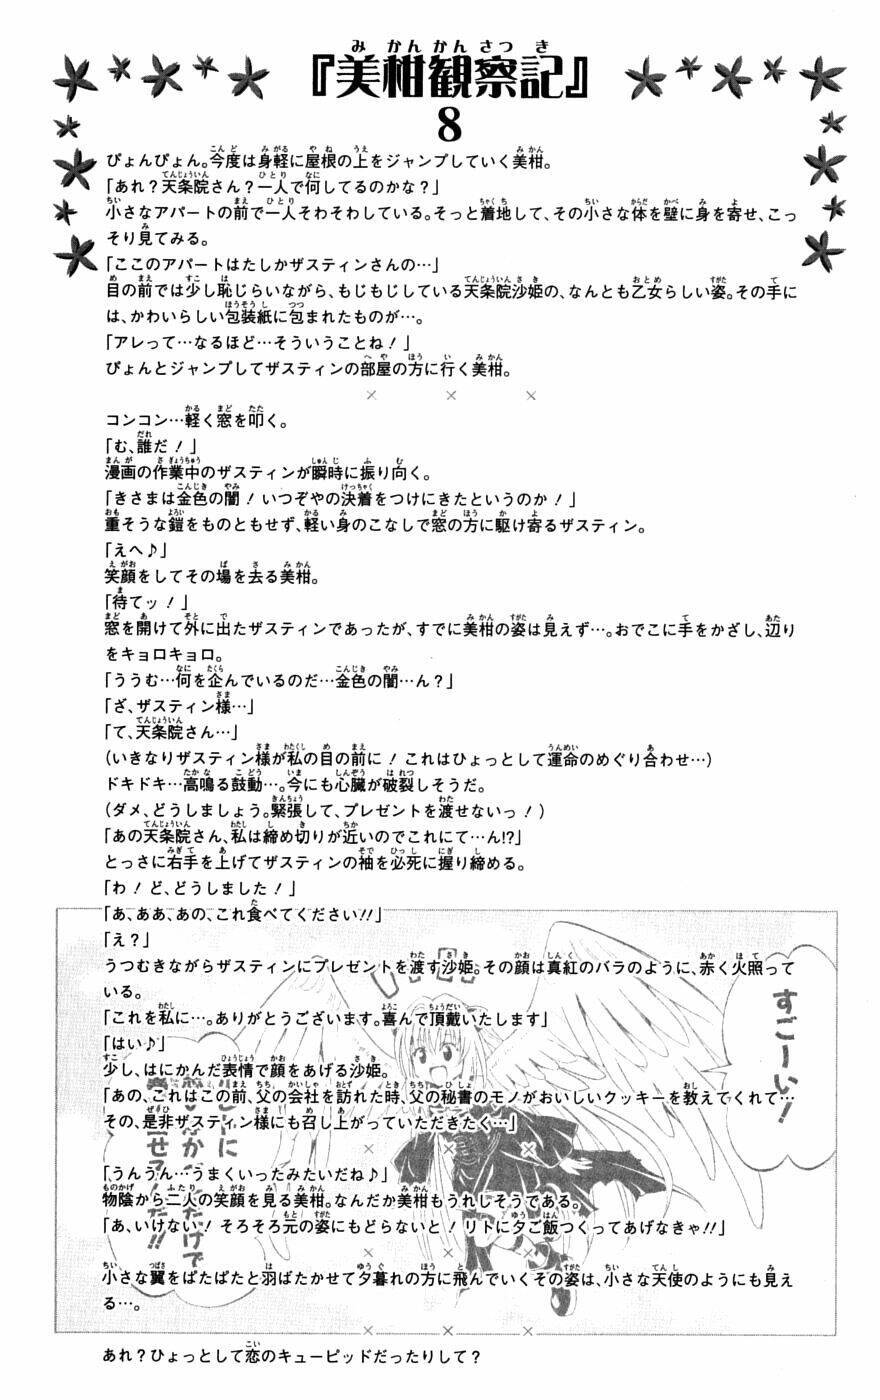 『美柑観察記』
8
ぴょんぴょん。今度は身軽に屋根の上をジャンプしていく美柑。
「あれ?天条院さん?一人で何してるのかな?」
小さなアパートの前で一人そわそわしている。そっと着地して、その小さな体を壁に身を寄せ、こっ
そり見てみる。
「ここのアパートはたしかザスティンさんの…」
目の前では少し恥じらいながら、もじもじしている天条院沙姫の、なんとも乙女らしい姿。その手に
は、かわいらしい包装紙に包まれたものが…。
「アレって…なるほど…そういうことね!」
ぴょんとジャンプしてザスティンの部屋の方に行く美柑。
× × ×
コンコン…軽く窓を叩く。
「む、誰だ!」
漫画の作業中のザスティンが瞬時に振り向く。
「きさまは金色の闇!いつぞやの決着をつけにきたというのか!」
重そうな鎧をものともせず、軽い身のこなしで窓の方に駆け寄るザスティン。
「えへ♪」
笑顔をしてその場を去る美柑。
「待てッ!」
窓を開けて外に出たザスティンであったが、すでに美柑の姿は見えず…。おでこに手をかざし、辺り
をキョロキョロ。
「ううむ…何を企んでいるのだ…金色の闇…ん?」
「ざ、ザスティン様…」
「て、天条院さん…」
(いきなりザスティン様が私の目の前に!これはひょっとして運命のめぐり合わせ…)
ドキドキ…高鳴る鼓動…。今にも心臓が破裂しそうだ。
(ダメ、どうしましょう。緊張して、プレゼントを渡せないっ!)
「あの天条院さん、私は締め切りが近いのでこれにて…ん!?」
とっさに右手を上げてザスティンの袖を必死に握り締める。
「わ!ど、どうしました!」
「あ、ああ、あの、これ食べてください!!」
「え?」
うつむきながらザスティンにプレゼントを渡す沙姫。その顔は真紅のバラのように、赤く火照って
いる。
「これを私に…。ありがとうございます。喜んで頂戴いたします」
「はい♪」
少し、はにかんだ表情で顔をあげる沙姫。
「あの、これはこの前、父の会社を訪れた時、父の秘書のモノがおいしいクッキーを教えてくれて…
その、是非ザスティン様にも召し上がっていただきたく…」
× × ×
「うんうん…うまくいったみたいだね♪」
物陰から二人の笑顔を見る美柑。なんだか美柑もうれしそうである。
「あ、いけない!そろそろ元の姿にもどらないと!リトに夕ご飯つくってあげなきゃ!!」
× × ×
小さな翼をぱたぱたと羽ばたかせて夕暮れの方に飛んでいくその姿は、小さな天使のようにも見え
る…。
× × ×
あれ?ひょっとして恋のキューピッドだったりして?
すごーい!